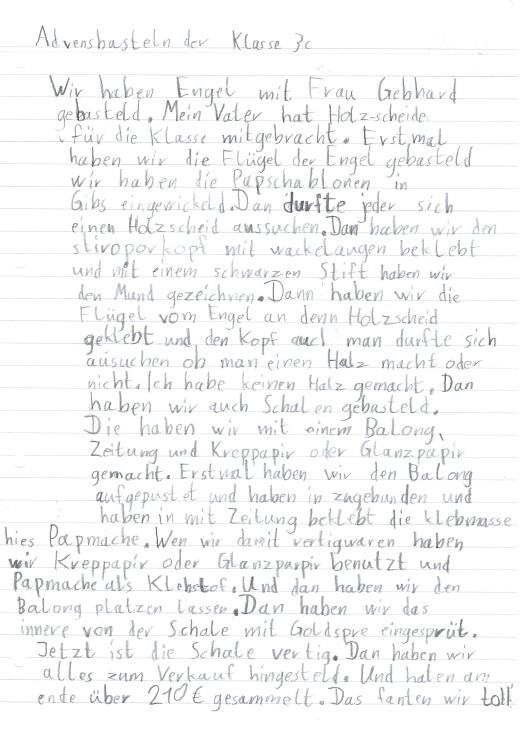 Advensbasteln der Klasse 3c
Wir haben Engel mit Frau Gebhard
gebasteld. Mein Vater hat Holz-scheide
für die Klasse mitgebracht. Erst mal
haben wir die Flügel der Engel gebasteld
wir haben die Papschablonen in
Gibs eingewickeld. Dan durfte jeder sich
einen Holzscheid aussuchen. Dan haben wir den
stiroporkopf mit wackelaugen beklebt
und mit einem schwarzen Stift haben wir
den Mund gezeichnen. Dann haben wir die
Flügel vom Engel an denn Holzscheid
geklebt und den Kopf auch man durfte sich
ausuchen ob man einen Halz macht oder
nicht. Ich habe keinen Halz gemacht. Dan
haben wir auch Schalen gebasteld.
Die haben wir mit einem Balong,
Zeitung und Kreppapir oder Glanzpapir
gemacht. Erstmal haben wir den Balong
aufgepustet und haben in zugebunden und
haben in mit Zeitung beklebt die klebmasse
hies Papmache. Wen wir damit vertigwaren haben
wir Kreppapir oder Glanzpapir benutzt und
Papmache als Klebstof. Und dan haben wir den
Balong platzen lassen. Dan haben wir das
innere von der Schale mit Goldspre eingesprüt.
Jetzt ist die Schale vertig. Dan haben wir
alles zum Verkauf hingesteld. Und haten am
ende über 210€ gesammelt. Das fanten wir toll